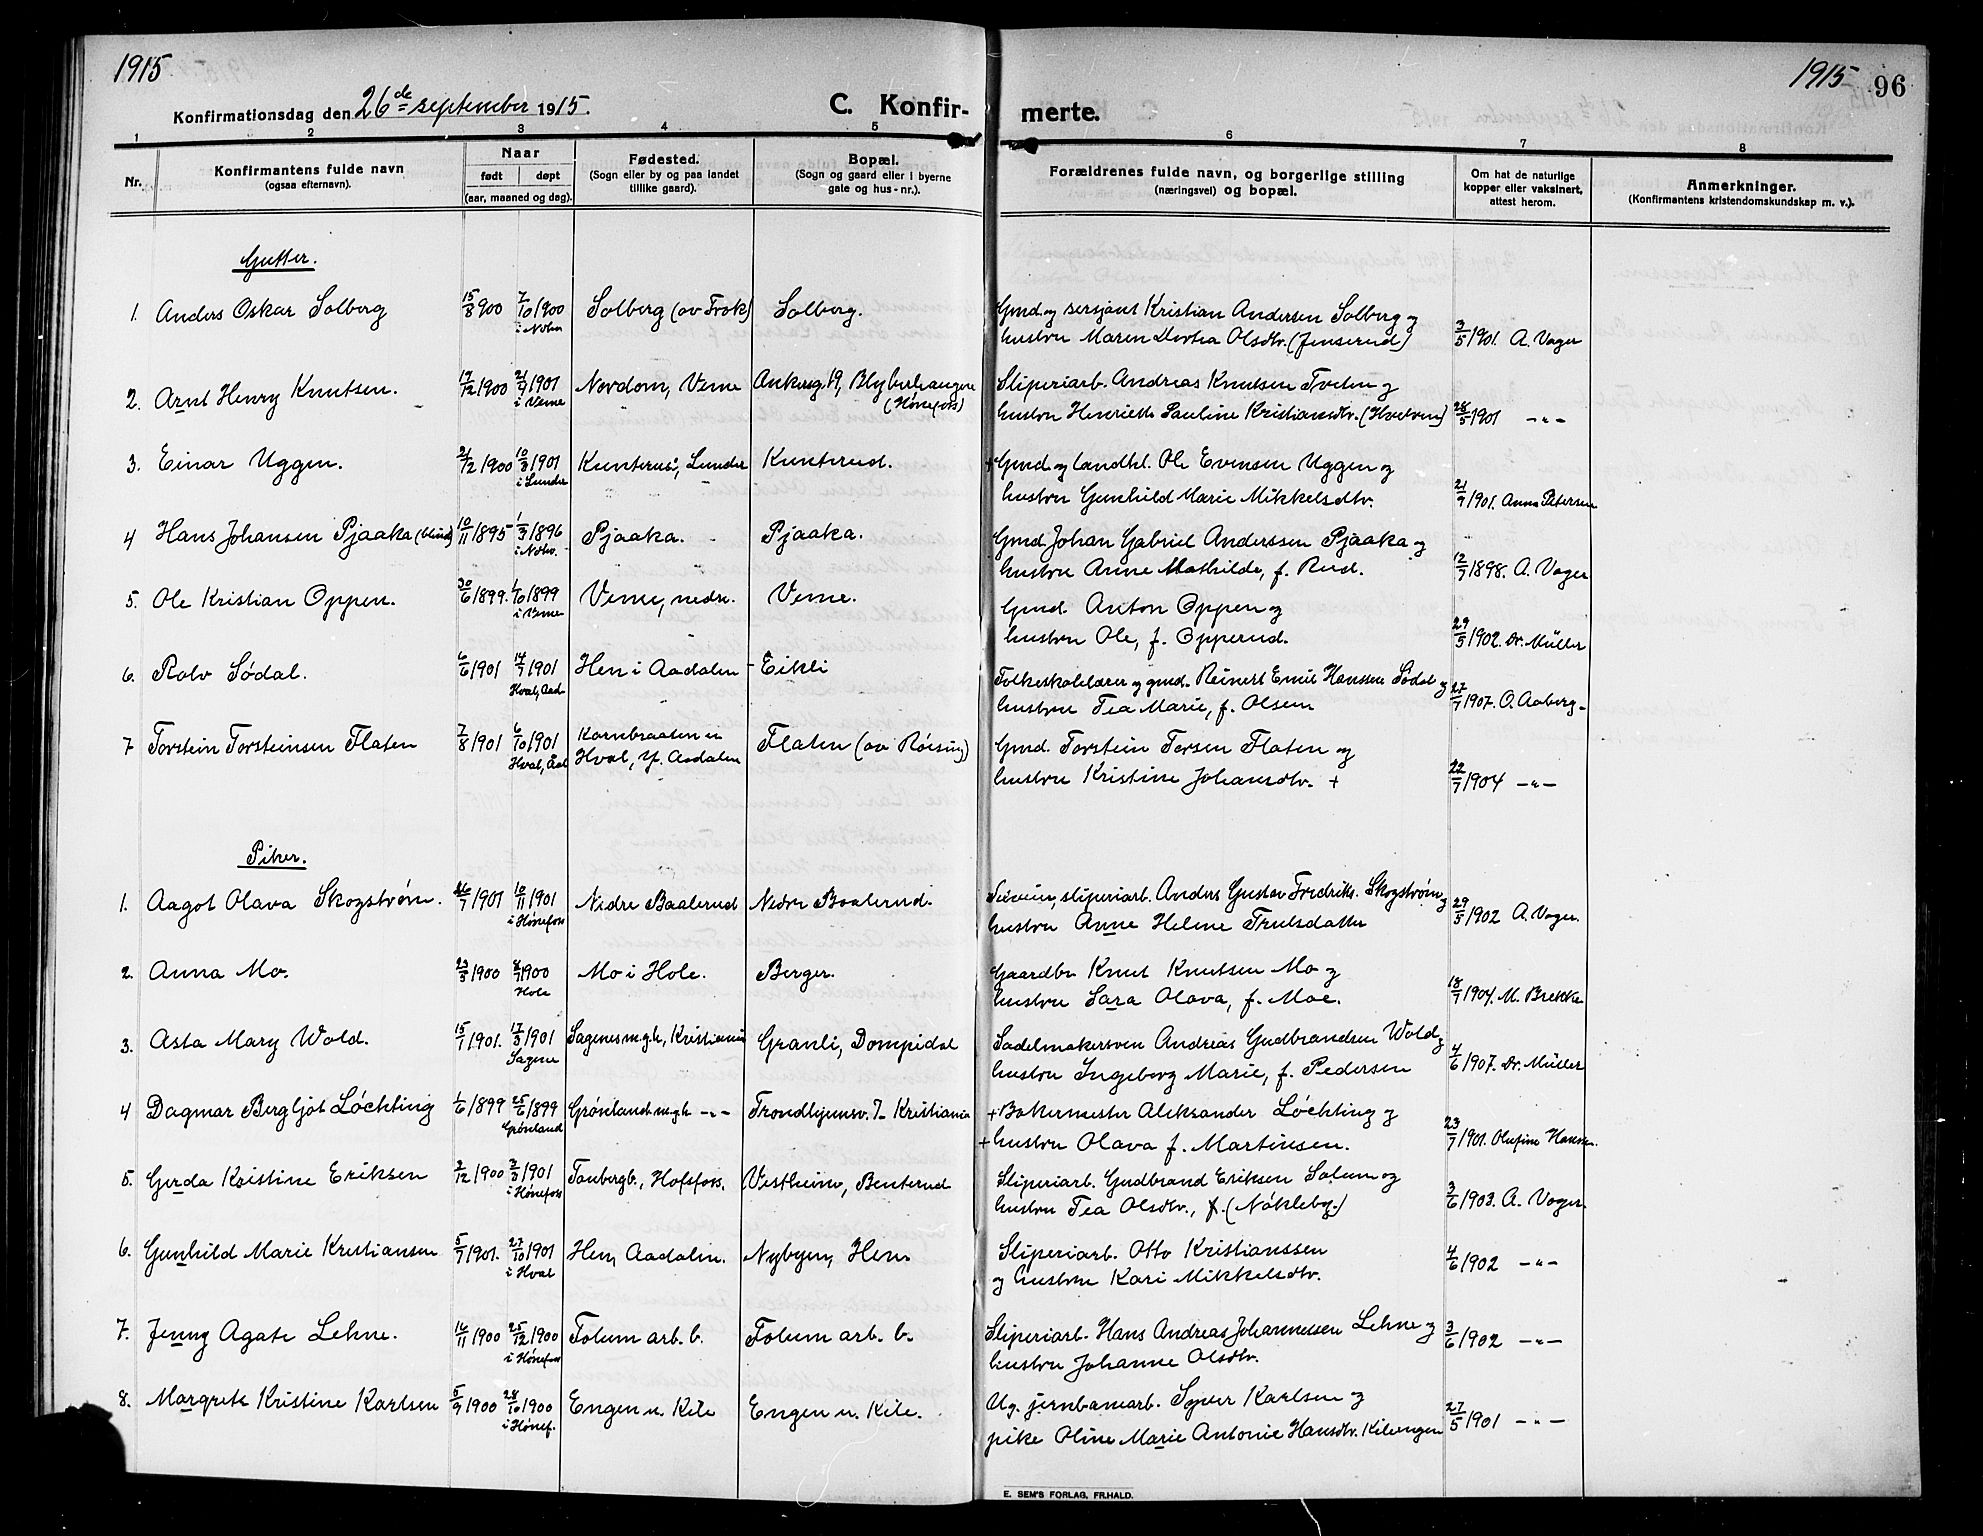 1915
1915 96
Konfirmationsdag den 26de september 1915.
C. Konfir-
merte.
1 2 3 4 5 6 7 8
Nr.
Konfirmantens fulde navn
(ogsaa efternavn).
Naar
født døpt
(aar, maaned og dag).
Fødested.
(Sogn eller by og paa landet
tillike gaard).
Bopæl.
(Sogn og gaard eller i byerne
gate og hus-nr.).
Forældrenes fulde navn, og borgerlige stilling
(næringsvei) og bopæl.
Om hat de naturlige
kopper eller vaksinert,
attest herom.
Anmerkninger.
(Konfirmantens kristendomskundskap m. v.).
Gutter.
1. Anders Oskar Solberg 15/8 900 7/10 1900 Solberg (av Frok) Solberg. Gmd og sersjant Kristian Andersen Solberg og
hustru Maren Dortea Olsdtr. (Jenserud) 3/5 1901. A. Vager
2. Arnt Henry Knutsen. 12/12 1900 21/4 1901 Nordom, Veme Ankersg. 19, Blyberhaugen
i Veme (Hønefoss)
Sliperiarb. Andreas Knutsen Tveten og
hustru Henriette Pauline Kristiansdtr. (Hvelven) 28/5 1901 -"-
3. Einar Uggen. 21/12 1900 10/3 1901 Kunterud, Lunder Kunterud. + Gmd og landhl. Ole Evensen Uggen og
i Lunder hustru Gunhild Marie Mikkelsdtr. 21/9 1901. Anna Petersen
4 Hans Johansen Pjaaka (blind) 10/11 1895 1/3 1896 Pjaaka. Pjaaka. Gmd Johan Gabriel Anderssen Pjaaka og
hustru Anne Mathilde, f. Rud. 12/7 1898. A. Vager
5. Ole Kristian Oppen. 30/6 1899. 1/10 1899 Veme, nedre. Veme. Gmd. Anton Oppen og
i Veme hustru Ole, f. Opperud. 29/5 1902. Dr. Müller
6. Rolv Sødal. 6/6 1901 14/7 1901 Hen i Aadalen Eikli Folkeskolelærer og gmd. Reinert Emil Hanssen Sødal og
Hval, Aad. hustru Tea Marie, f. Olsen 27/7 1907. O. Aaberg-
7 Torstein Torsteinsen Flaten 7/8 1901 6/10 1901 Kornbraaten u Flaten (av Røising) Gmd. Torstein Torsen Flaten og
Hval, Aal Hval, Y. Aadalen hustru Kristine Johansdtr. + 22/7 1904 -"-
Piker.
1. Aagot Olava Skogstrøm. 26/7 1901 10/11 1901 Nedre Baalerud Nedre Baalerud. sliperiarb. Anders Gustav Fredriks. Skogstrøm og
i Hønefoss hustru Anne Helene Trulsdatter 29/5 1902 A. Vager.
2. Anna Mo. 23/3 1900 1900 Mo i Hole. Berger. Gaardbr. Knut Knutsen Mo og
Hole hustru Sara Olava, f. Moe. 18/7 1904. M. Brekke
3. Asta Mary Wold. 15/1 1901. 17/3 1901 Sagenes mgh., Kristiania Granli, Dompidal Sadelmakersven Andreas Gudbrandsen Wold og
Sagene hustru Ingeborg Marie, f. Pedersen 4/6 1907. Dr. Müller
4 Dagmar Bergljot Løchting 1/6 1899 25/6 1899 Grønland mgh. -"- Trondhjemsv. 7- Kristiania + Bakermester Aleksander Løchting og
Grønland + hustru Olava f. Martinsen. 23/7 1901. Olufine Hansen.
5. Gerda Kristine Eriksen 2/12 1900 3/3 1901 Taubergb., Hofsfoss. Vestheim, Benterud Sliperiarb. Gudbrand Eriksen Solum og
i Hønefoss hustru Tea Olsdtr., f. (Nøkleby.) 3/6 1903. A. Vager.
6. Gunhild Marie Kristiansen 5/9 1901. 27/10 1901 Hen, Aadalen. Nybyen, Hen. Sliperiarb. Otto Kristianssen
i Hval og hustru Kari Mikkelsdtr. 4/6 1902 -"-
7. Jenny Agate Lehne. 16/11 1900 25/12 1900 Folum arb. b. Folum arb. b. Sliperiarb. Hans Andreas Johannessen Lehne og
i Hønefoss hustru Johanne Olsdtr. 3/6 1902 -"-
8. Margrete Kristine Karlsen 5/9 1900 28/10 1900 Engen u. Kile Engen u. Kile. Ug. jernbanearb. Syver Karlsen og
i Hønef. pike Oline Marie Antonie Hansdtr. Kilengen 27/5 1901 -"-
E. SEM'S FORLAG, FR.HALD.